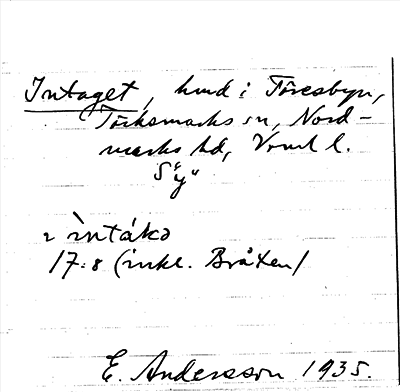 Intaget, hmd i Töresbyn,
Törksmarks sn, Nord-
marks hd, Vrml l.
S "y"
ı ìntákə
17:8 (inkl. Bråten)
E. Andersson 1935.